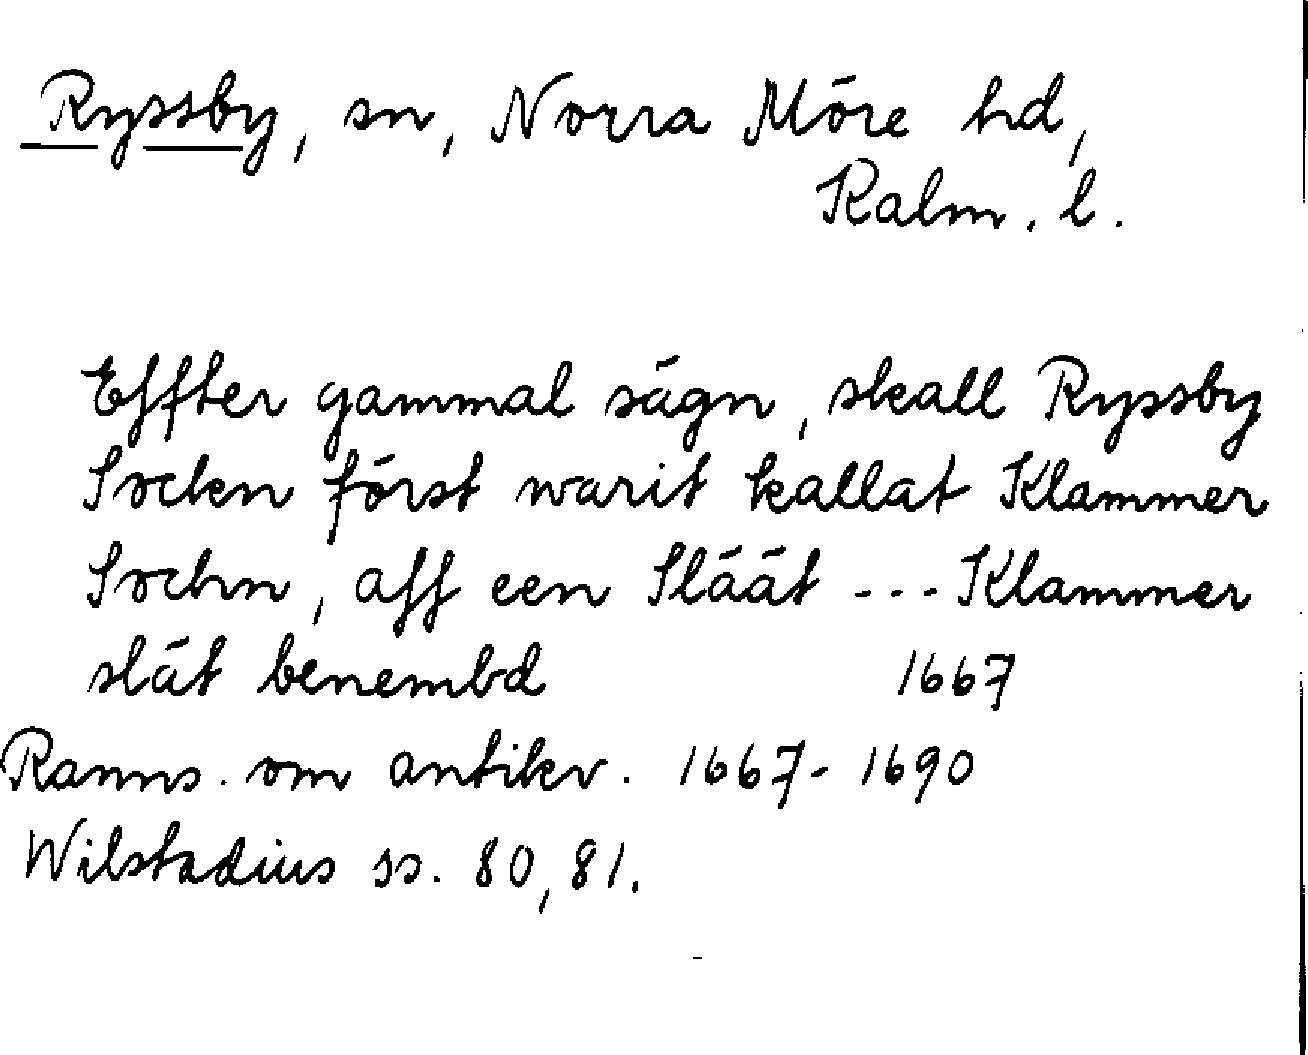 Ryssby, sn, Norra Möre hd,
Kalm. l.
Effter gammal sägn, skall Ryssby
Sockn först warit kallat Klammer
Sochn, aff een Släät --- Klammer
slät benembd 1667
Ranns. om antikv. 1667-1690
Wilstadius ss. 80, 81.